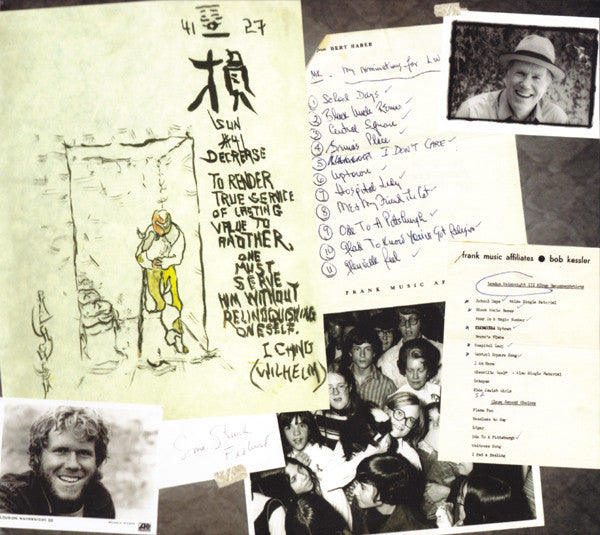 41 27
損
SUN
#41
DECREASE
TO RENDER
TRUE SERVICE
OF LASTING
VALUE TO
ANOTHER,
ONE
MUST
SERVE
HIM WITHOUT
RELINQUISHING
ONESELF.
I CHING
(WILHELM)
BERT HABER
My nominations for LW
① School Days ✓
② Black Uncle Remus ✓
③ Central Square ✓
④ Bruno's Place ✓
⑤ I DON'T CARE ✓
⑥ Uptown ✓
⑦ Hospital Lady ✓
⑧ Me & My Friend the Cat ✓
⑨ Ode To A Pittsburgh ✓
⑩ Glad To Know You've Got Religion ✓
⑪ Glenville Reel ✓
FRANK MUSIC AF
frank music affiliates ● bob kessler
Loudon Wainwright III Album Recommendations
School Days *Also Single Material
Black Uncle Remus
Four Is a Magic Number
Uptown
Bruno's Place
Hospital Lady ✓
Central Square Song ✓
I Am Here
Glenville Reel* - Also Single Material
Octopus
Nice Jewish Girls
Close Second Choices
Plane Too
Edgar
Ode To A Pittsburgh ✓
Waitress Song
I Had a Feeling
Some Shank
Festival
LOUDON WAINWRIGHT III
ATLANTIC